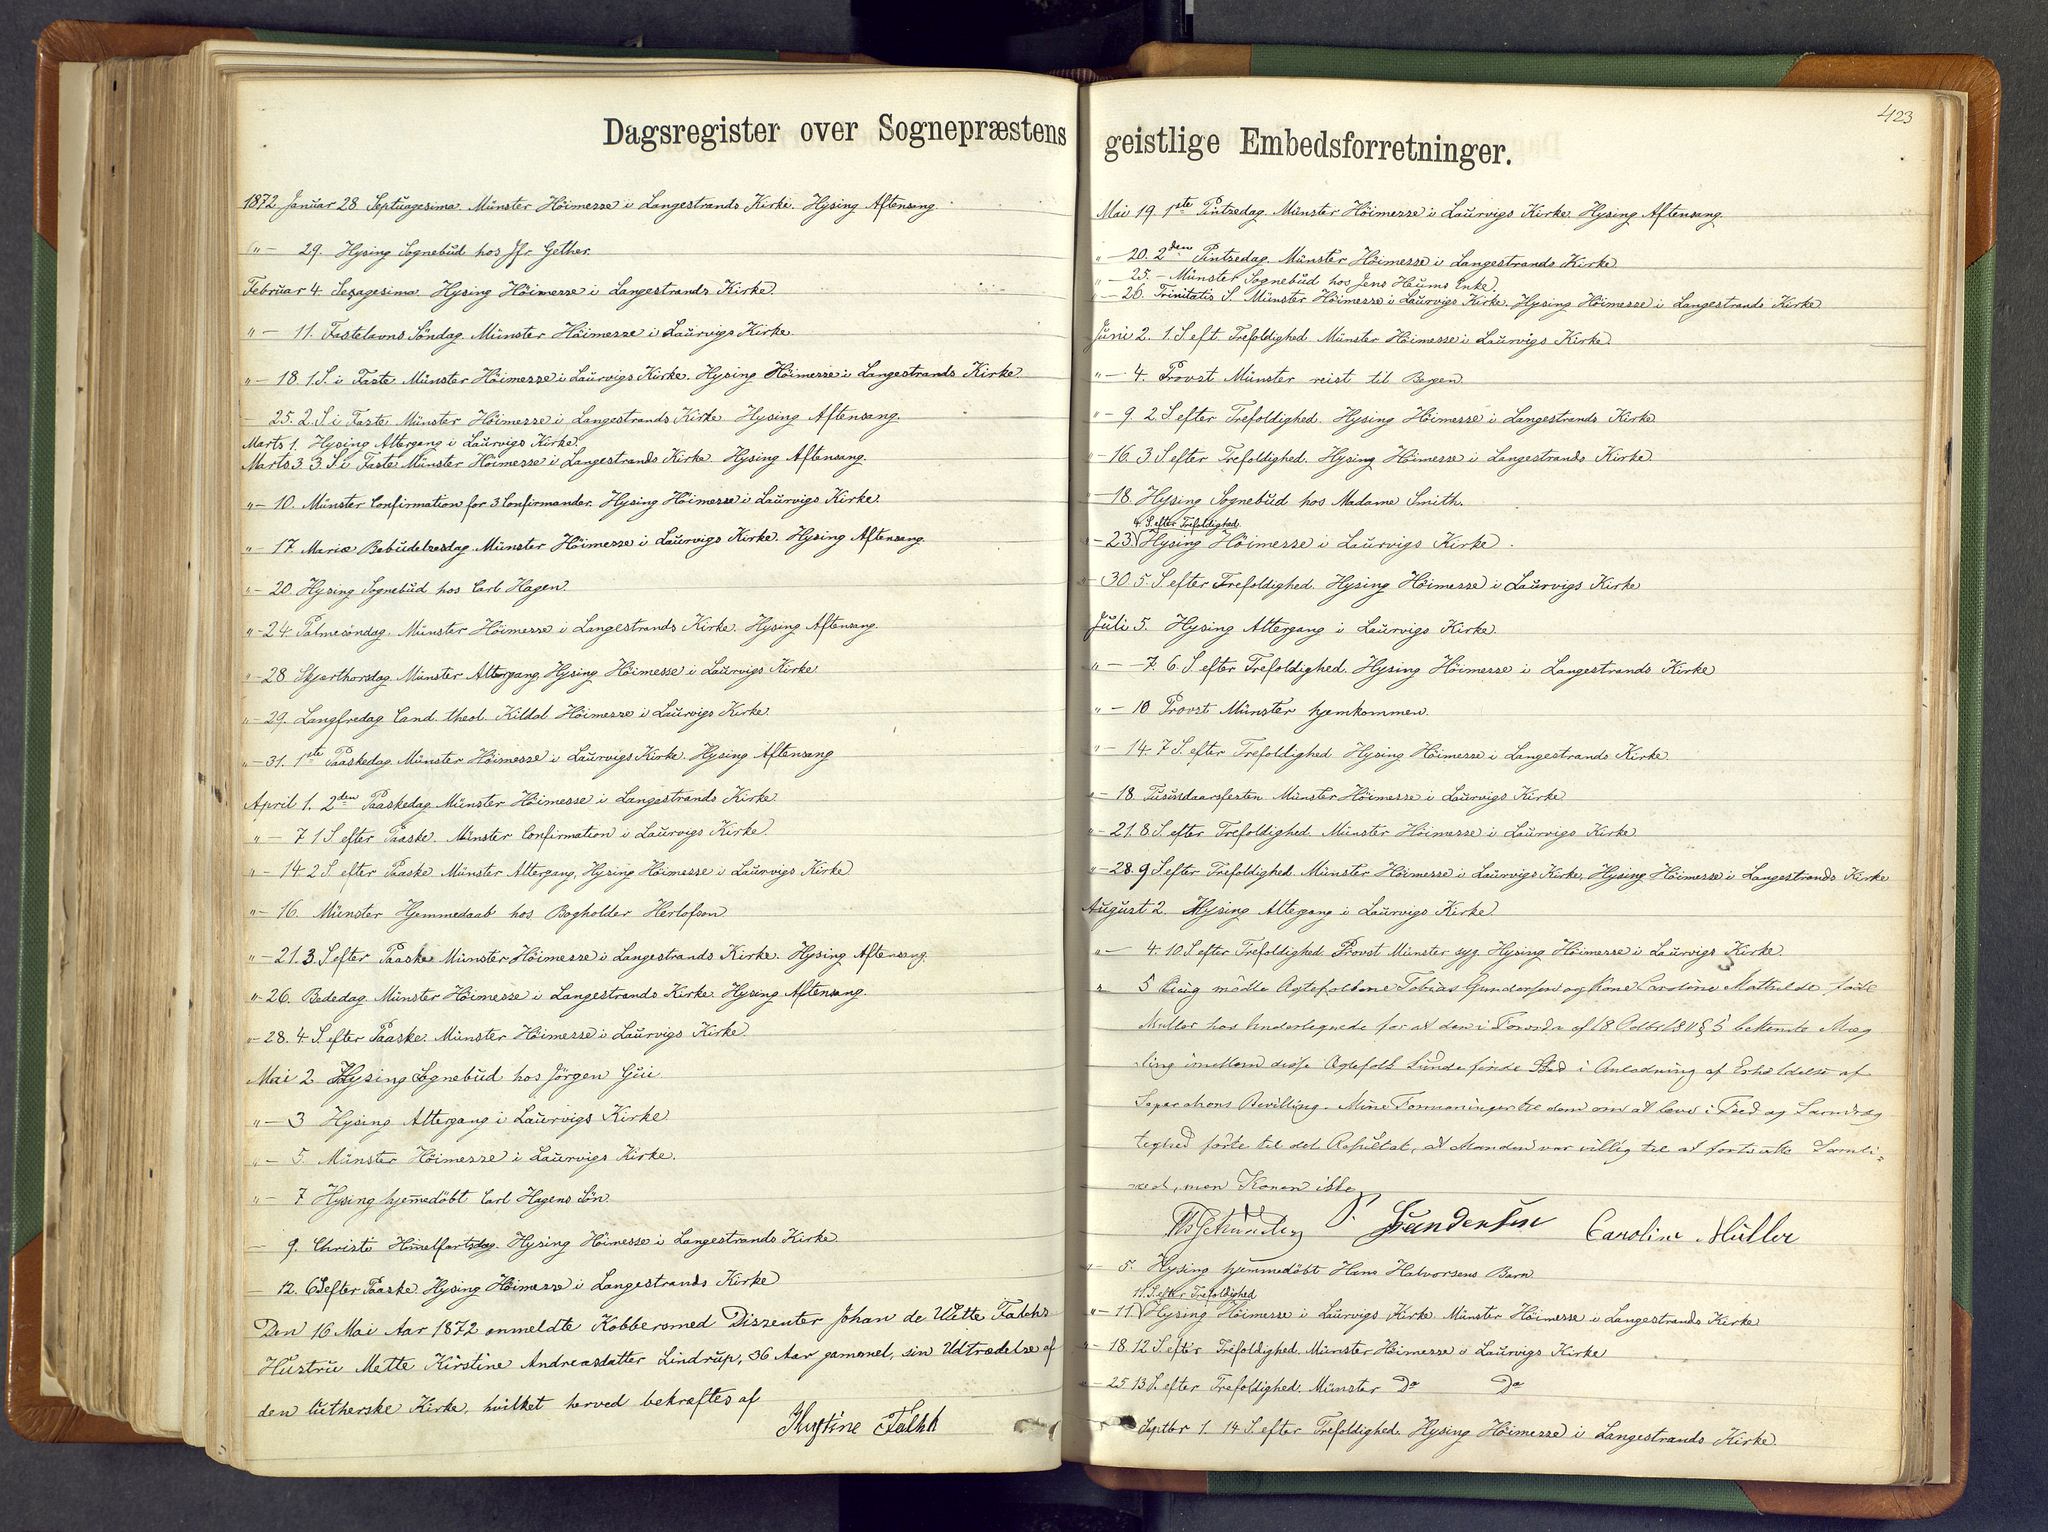 Dagsregister over Sognepræstens
1872 Januar 28 Septuagesima Münster Höimesse i Langestrands Kirke. Hysing Aftensang.
"— 29. Hysing Sognebud hos Jfr. Gether.
Februar 4. Sexagesima. Hysing Höimesse i Langestrands Kirke.
"— 11. Fastelavns Söndag. Münster Höimesse i Laurvigs Kirke.
"— 18. 1. S. i Faste Münster Höimesse i Laurvigs Kirke. Hysing Höimesse i Langestrands Kirke.
— 25. 2. S i Faste Münster Höimesse i Langestrands Kirke Hysing Aftensang.
Marts 1. Hysing Altergang i Laurvigs Kirke.
Marts 3. 3. S. i Faste Münster Höimesse i Langestrands Kirke. Hysing Aftensang.
"— 10. Münster Confirmation for 3 Confirmander. Hysing Höimesse i Laurvigs Kirke
"— 17. Mariæ Bebudelsesdag. Münster Höimesse i Laurvigs Kirke. Hysing Aftensang.
"— 20. Hysing Sognebud hos Carl Hagen.
"— 24. Palmesöndag. Münster Höimesse i Langestrands Kirke. Hysing Aftensang.
"— 28. Skjærthorsdag. Münster Altergang, Hysing Höimesse i Laurvigs Kirke
"— 29. Langfredag Cand. theol. Kildal Höimesse i Laurvigs Kirke.
"— 31. 1ste Paaskedag Münster Höimesse i Laurvigs Kirke. Hysing Aftensang
April 1. 2den Paaskedag. Münster Höimesse i Langestrands Kirke
"— 7 1 S efter Paaske. Münster Confirmation i Laurvigs Kirke.
"— 14. 2 S. efter Paaske Münster Altergang, Hysing Höimesse i Laurvigs Kirke
"— 16. Münster Hjemmedaab hos Bogholder Herlofson
"— 21. 3. S. efter Paaske Münster Höimesse i Langestrands Kirke. Hysing Aftensang.
"— 26. Bededag. Münster Höimesse i Langestrands Kirke. Hysing Aftensang.
"— 28. 4. S. efter Paaske. Münster Höimesse i Laurvigs Kirke.
Mai 2 Hysing Sognebud hos Jörgen
"— 3 Hysing Altergang i Laurvigs Kirke
"— 5. Münster Höimesse i Laurvigs Kirke.
"— 7 Hysing hjemmedöbt Carl Hagens Sön.
— 9. Christi Himelfartsdag. Hysing Höimesse i Langestrands Kirke.
— 12. 6 S efter Paaske. Hysing Höimesse i Langestrands Kirke
Den 16 Mai Aar 1872 anmeldte Kobbersmed Dissenter Johan de Wette Falchs
Hustru Mette Kirstine Andreasdatter Lindrup, 36 Aar gammel, sin Udtrædelse af
den lutherske Kirke, hvilket herved bekræftes af
Kirstine Falkk
423
geistlige Embedsforretninger.
Mai 19. 1ste Pintsedag. Münster Höimesse i Laurvigs Kirke. Hysing Aftensang.
"— 20. 2den Pintsedag. Münster Höimesse i Langestrands Kirke
"— 25. — Münster Sognebud hos Jens Heums Enke.
"— 26. Trinitatis S. Münster Höimesse i Laurvigs Kirke. Hysing Höimesse i Langestrands Kirke
Juni 2. 1. S. eft. Trefoldighed. Münster Höimesse i Laurvigs Kirke
"— 4. Provst Münster reist til Bergen.
"— 9 2. S efter Trefoldighed. Hysing Höimesse i Langestrands Kirke
— 16. 3 S efter Trefoldighed. Hysing Höimesse i Langestrands Kirke
— 18. Hysing Sognebud hos Madame Smith.
4. S. efter Trefoldighed.
— 23. Hysing Höimesse i Laurvigs Kirke.
— 30. 5 S. efter Trefoldighed. Hysing Höimesse i Laurvigs Kirke
Juli 5. Hysing Altergang i Laurvigs Kirke.
"— 7. 6. S. efter Trefoldighed. Hysing Höimesse i Langestrands Kirke
"— 10 Provst Münster hjemkommen.
"— 14. 7 S. efter Trefoldighed. Hysing Höimesse i Langestrands Kirke.
"— 18. Tusindaarsfesten Münster Höimesse i Laurvigs Kirke
"— 21. 8. S. efter Trefoldighed. Münster Höimesse i Laurvigs Kirke
"— 28. 9 S. efter Trefoldighed. Münster Höimesse i Laurvigs Kirke, Hysing Höimesse i Langestrands Kirke
August 2. Hysing Altergang i Laurvigs Kirke.
"— 4. 10. S. efter Trefoldighed. Provst Münster syg. Hysing Höimesse i Laurvigs Kirke.
" 5 Aug mødte Ægtefolkene Tobias Gundersen og Kone Caroline Mathilde født
Müller hos Undertegnede for at den i Forordn af 18 Octbr 1811 § 5 bestemte Mæg
ling imellem disse Ægtefolk kunde finde Sted i Anledning af Erholdelse af
Separations Bevilling. Mine Formaninger til dem om at leve i Fred og Samdræg
tighed førte til det Resultat, at Manden var villig til at fortsætte Samli-
vet, men Konen ikke.
T. Gundersen Caroline Müller
" 5. Hysing hjemmedöbt Hans Halvorsens Barn.
11. S. efter Trefoldighed
"— 11 Hysing Höimesse i Laurvigs Kirke. Münster Höimesse i Langestrands Kirke
"— 18. 12 S. efter Trefoldighed. Münster Höimesse i Laurvigs Kirke
"— 25 13 S. efter Trefoldighed. Münster Do Do
Septbr 1. 14 S. efter Trefoldighed. Hysing Höimesse i Langestrands Kirke.